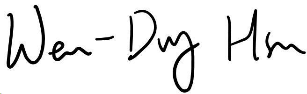 Wen-Duy Hsu